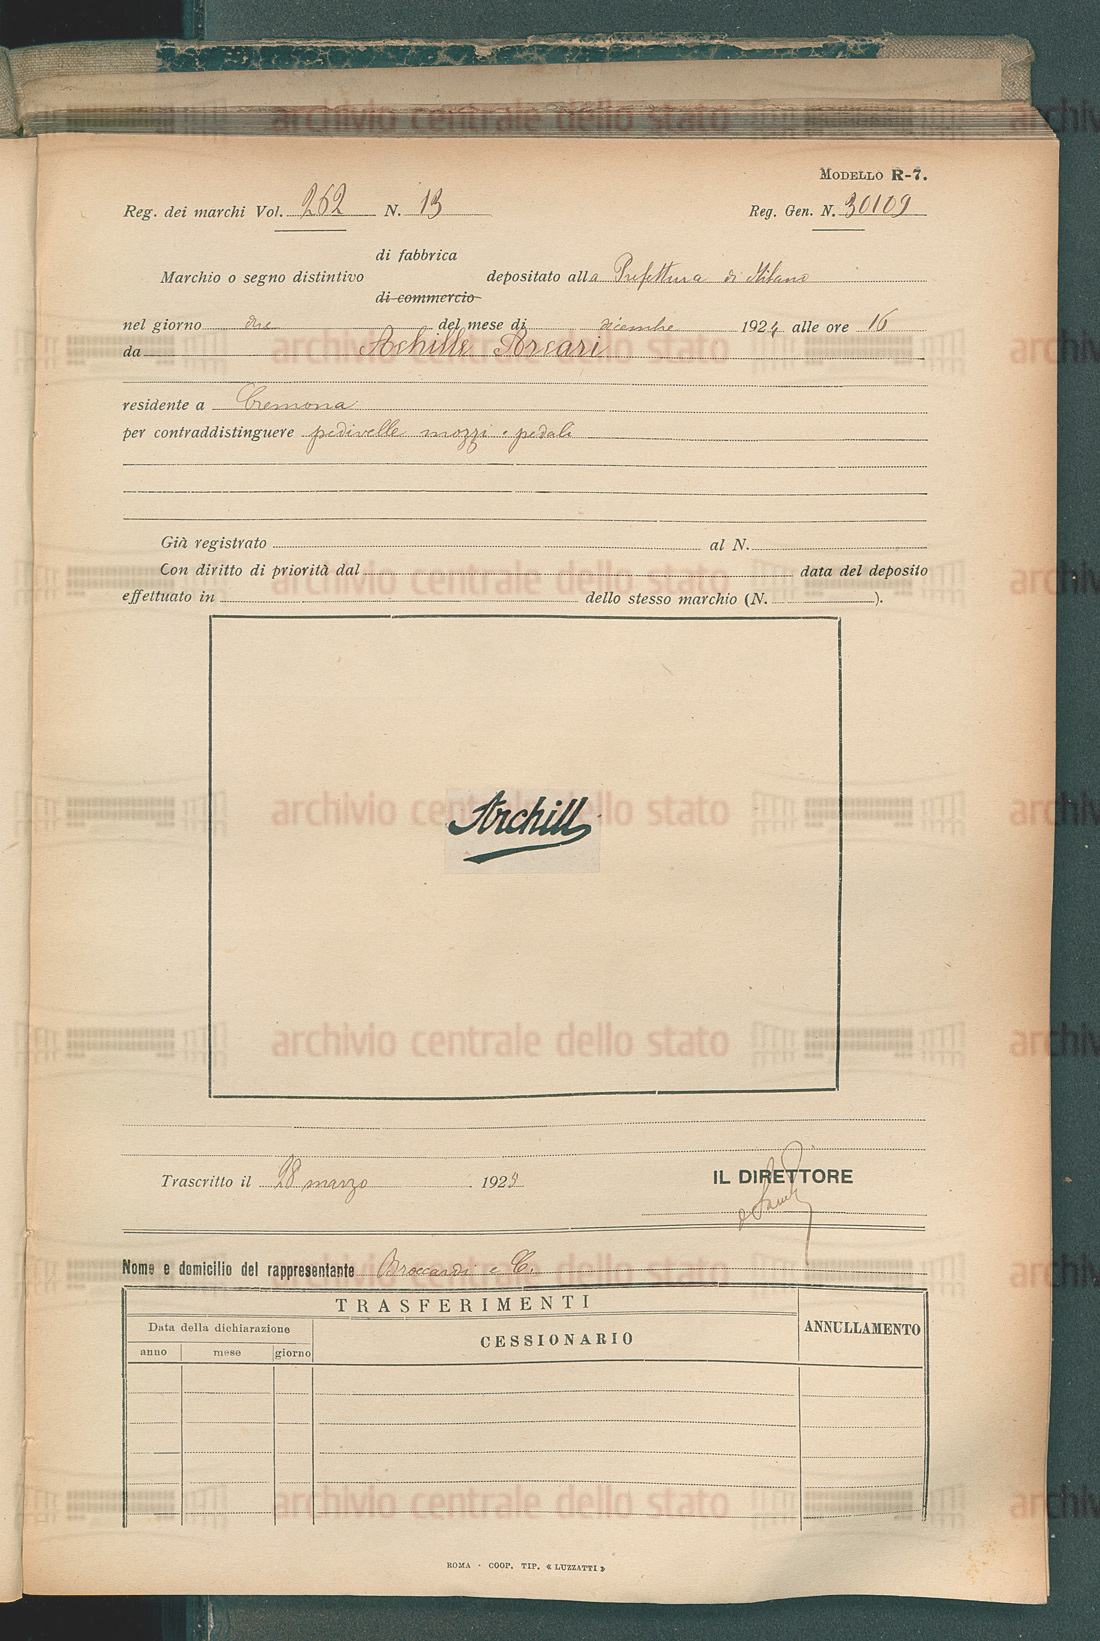 MODELLO R-7.
Reg. dei marchi Vol. 262 N. 13 Reg. Gen. N. 30109
di fabbrica
Marchio o segno distintivo depositato alla Prefettura di Milano
di commercio
nel giorno due del mese di dicembre 1924 alle ore 16
da Achille Arcari
residente a Cremona
per contraddistinguere pedivelle mozzi e pedali
Già registrato al N.
Con diritto di priorità dal data del deposito
effettuato in dello stesso marchio (N. ).
Archill
Trascritto il 28 marzo 192
IL DIRETTORE
Nome e domicilio del rappresentante Broccardi e C.
TRASFERIMENTI
Data della dichiarazione CESSIONARIO ANNULLAMENTO
anno mese giorno
ROMA - COOP. TIP. « LUZZATTI »
archivio centrale dello stato